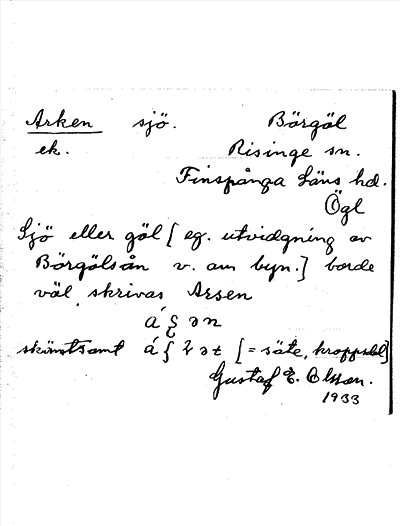 Arken sjö. Börgöl
ek. Risinge sn.
Finspånga läns hd.
Ögl
Sjö eller göl [ eg. utvidgning av
Börgölsån v. om byn.] borde
väl skrivas Arsen
skämtsamt [= säte, kroppsdel]
Gustaf E. Olsson.
1933